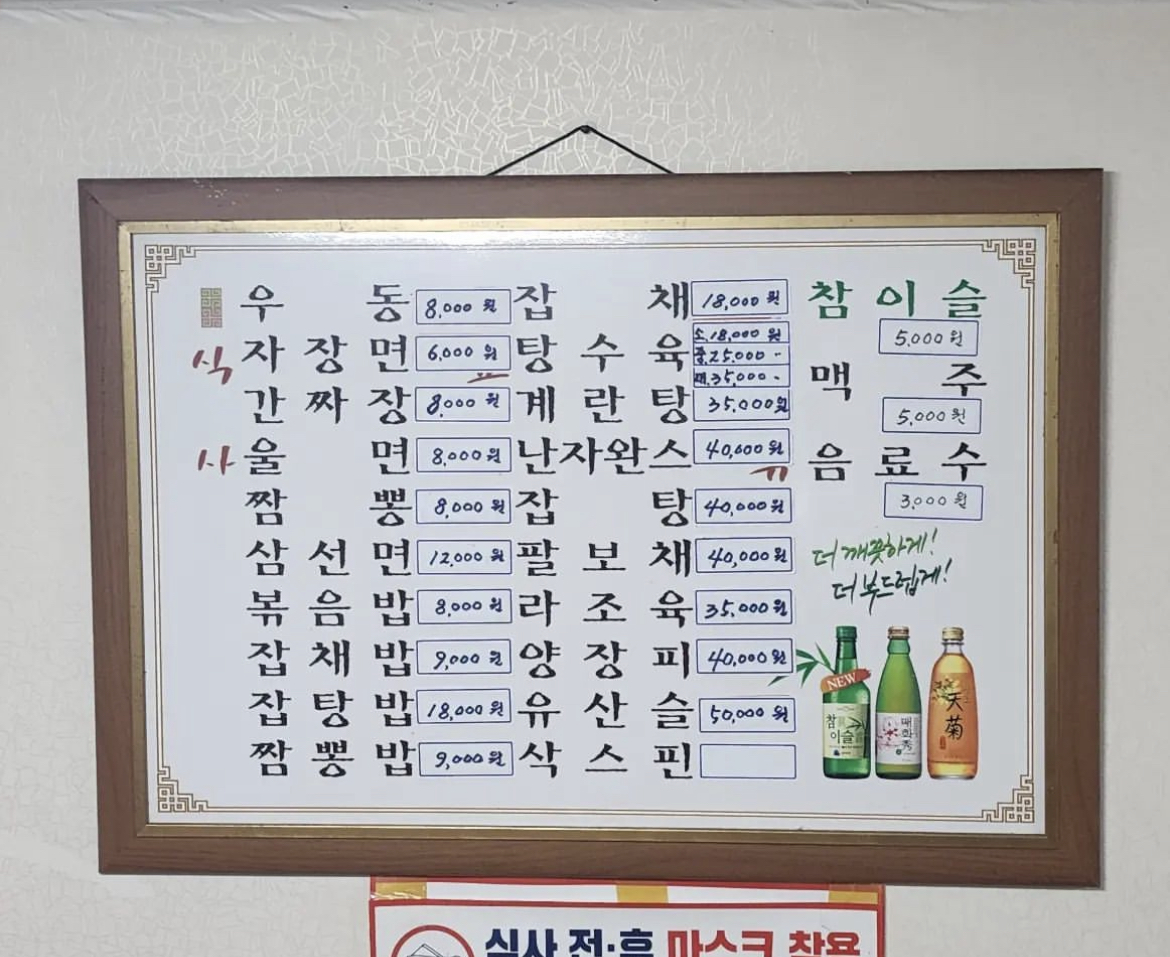 식사
우동 8,000원
자장면 6,000원
간짜장 8,000원
울면 8,000원
짬뽕 8,000원
삼선면 12,000원
볶음밥 8,000원
잡채밥 9,000원
잡탕밥 18,000원
짬뽕밥 9,000원
요
잡채 18,000원
탕수육 소.18,000원
중.25,000-
대.35,000-
계란탕 35,000원
난자완스 40,000원
잡탕 40,000원
팔보채 40,000원
라조육 35,000원
양장피 40,000원
유산슬 50,000원
삭스핀
류
참이슬
5,000원
맥주
5,000원
음료수
3,000원
더 깨끗하게!
더 부드럽게!
NEW
참
이슬
매화秀
天菊
식사 전·후 마스크 착용